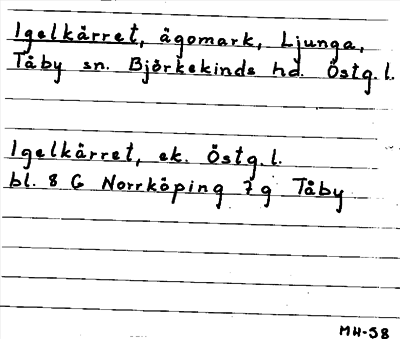 Igelkärret, ägomark, Ljunga,
Tåby sn. Björkekinds hd. Östg.l.
Igelkärret, ek. Östg.l.
bl. 8 G Norrköping 7g Tåby
MH-58